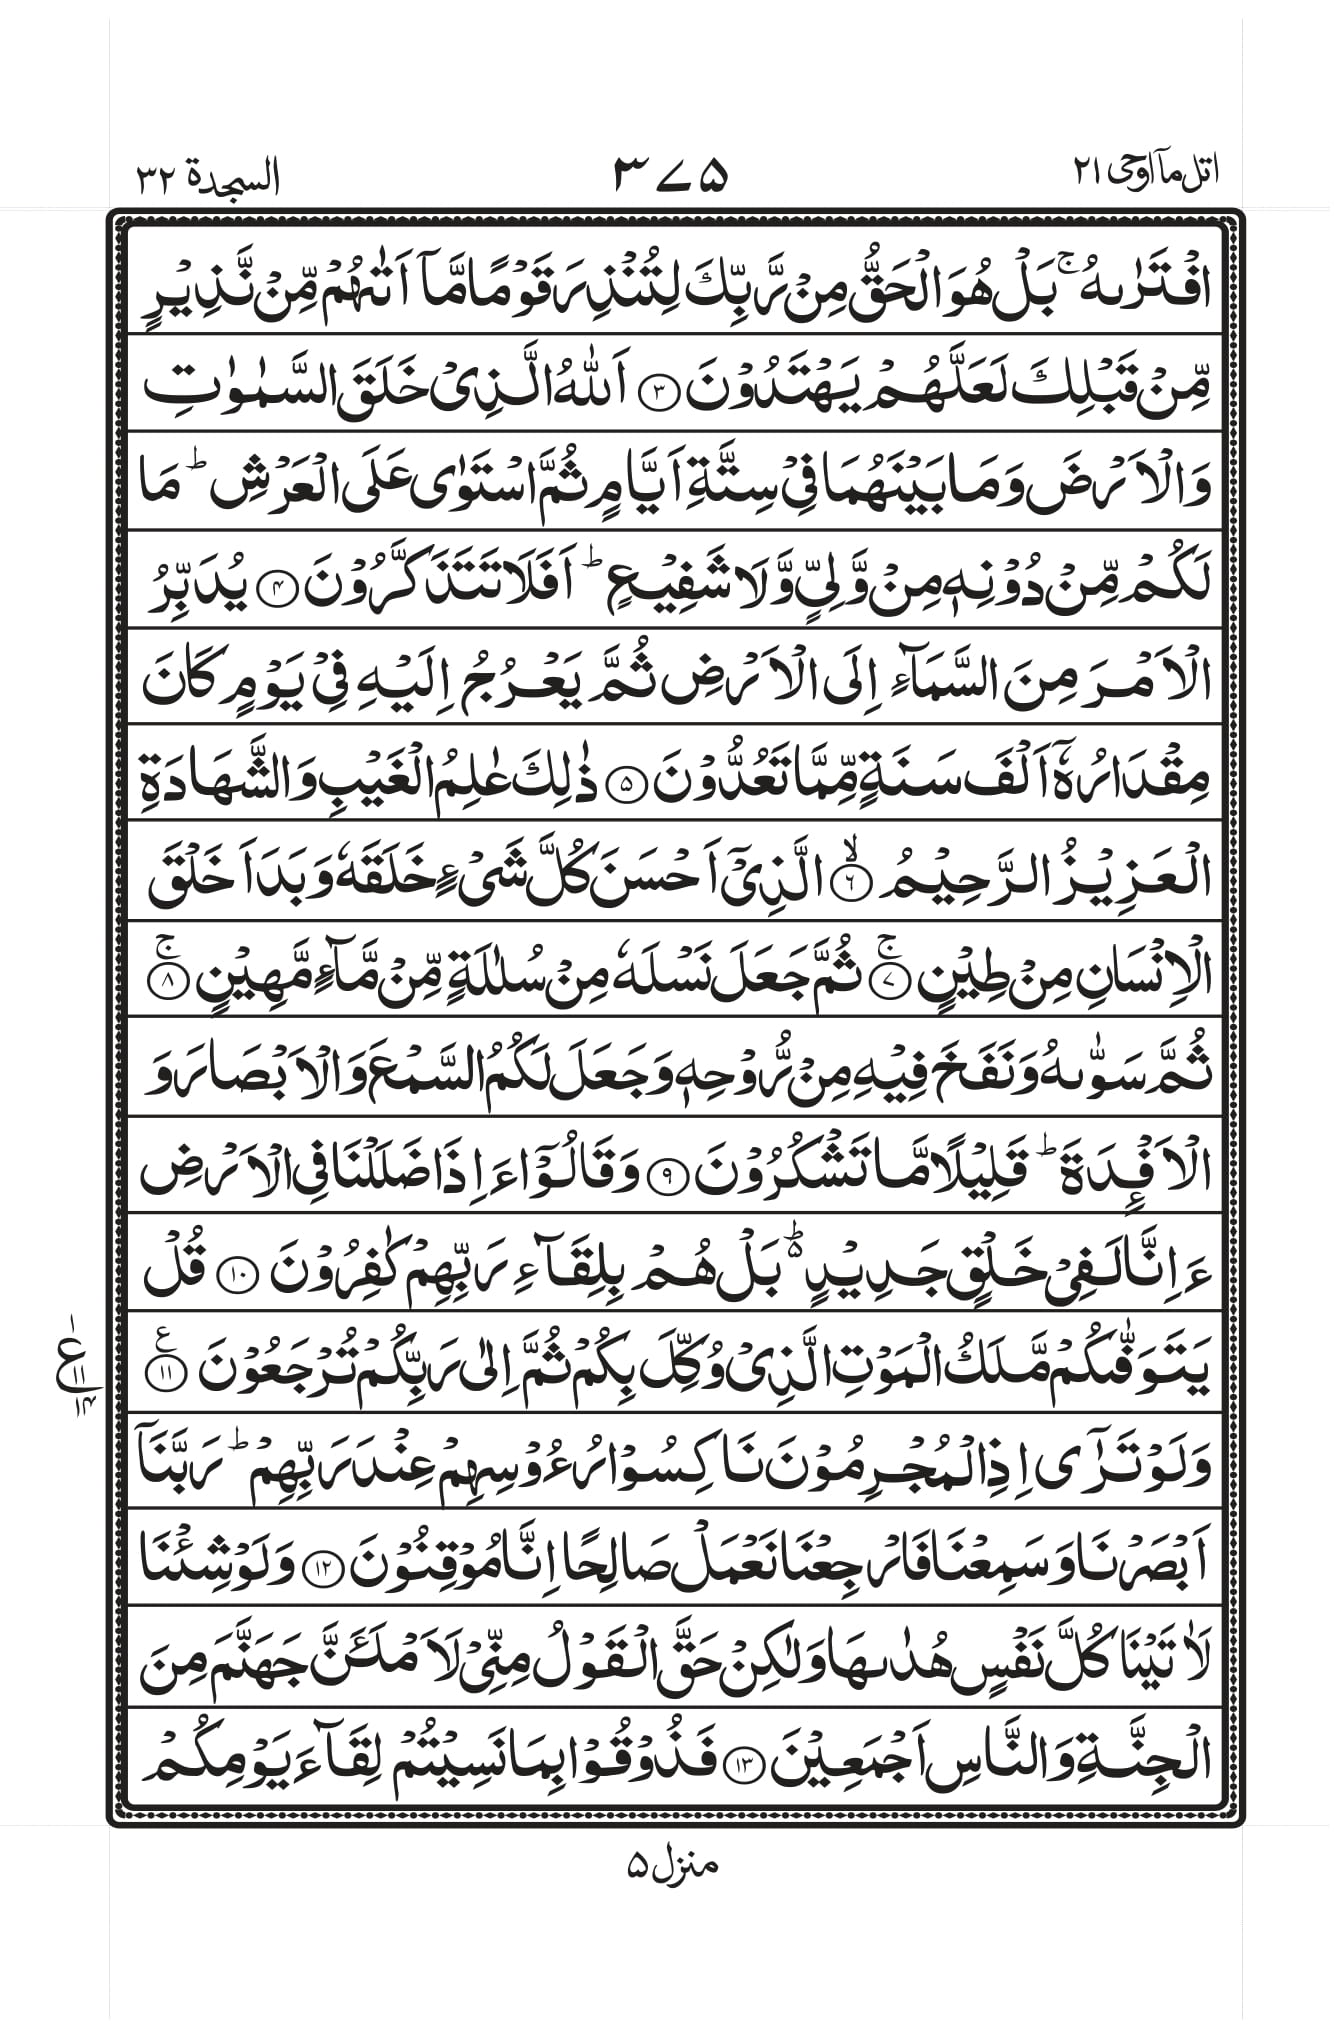 اتل مآ اوحی ۲۱ ۳۷۵ السجدة ۳۲
افْتَرٰىهُ ۚ بَلْ هُوَ الْحَقُّ مِنْ رَّبِّكَ لِتُنْذِرَ قَوْمًا مَّاۤ اَتٰىهُمْ مِّنْ نَّذِیْرٍ
مِّنْ قَبْلِكَ لَعَلَّهُمْ یَهْتَدُوْنَ ﴿۳﴾ اَللّٰهُ الَّذِیْ خَلَقَ السَّمٰوٰتِ
وَالْاَرْضَ وَمَا بَیْنَهُمَا فِیْ سِتَّةِ اَیَّامٍ ثُمَّ اسْتَوٰی عَلَی الْعَرْشِ ؕ مَا
لَكُمْ مِّنْ دُوْنِهٖ مِنْ وَّلِیٍّ وَّلَا شَفِیْعٍ ؕ اَفَلَا تَتَذَكَّرُوْنَ ﴿۴﴾ یُدَبِّرُ
الْاَمْرَ مِنَ السَّمَآءِ اِلَی الْاَرْضِ ثُمَّ یَعْرُجُ اِلَیْهِ فِیْ یَوْمٍ كَانَ
مِقْدَارُهٗۤ اَلْفَ سَنَةٍ مِّمَّا تَعُدُّوْنَ ﴿۵﴾ ذٰلِكَ عٰلِمُ الْغَیْبِ وَالشَّهَادَةِ
الْعَزِیْزُ الرَّحِیْمُ ﴿۶﴾ۙ الَّذِیْۤ اَحْسَنَ كُلَّ شَیْءٍ خَلَقَهٗ وَبَدَاَ خَلْقَ
الْاِنْسَانِ مِنْ طِیْنٍ ﴿۷﴾ۚ ثُمَّ جَعَلَ نَسْلَهٗ مِنْ سُلٰلَةٍ مِّنْ مَّآءٍ مَّهِیْنٍ ﴿۸﴾ۚ
ثُمَّ سَوّٰىهُ وَنَفَخَ فِیْهِ مِنْ رُّوْحِهٖ وَجَعَلَ لَكُمُ السَّمْعَ وَالْاَبْصَارَ وَ
الْاَفْـِٕدَةَ ؕ قَلِیْلًا مَّا تَشْكُرُوْنَ ﴿۹﴾ وَقَالُوْۤا ءَاِذَا ضَلَلْنَا فِی الْاَرْضِ
ءَاِنَّا لَفِیْ خَلْقٍ جَدِیْدٍ ؕ۬ بَلْ هُمْ بِلِقَآءِ رَبِّهِمْ كٰفِرُوْنَ ﴿۱۰﴾ قُلْ
یَتَوَفّٰىكُمْ مَّلَكُ الْمَوْتِ الَّذِیْ وُكِّلَ بِكُمْ ثُمَّ اِلٰی رَبِّكُمْ تُرْجَعُوْنَ ﴿۱۱﴾ ع
۱ ع ۱۱ ۱۴
وَلَوْ تَرٰۤی اِذِ الْمُجْرِمُوْنَ نَاكِسُوْا رُءُوْسِهِمْ عِنْدَ رَبِّهِمْ ؕ رَبَّنَاۤ
اَبْصَرْنَا وَسَمِعْنَا فَارْجِعْنَا نَعْمَلْ صَالِحًا اِنَّا مُوْقِنُوْنَ ﴿۱۲﴾ وَلَوْ شِئْنَا
لَاٰتَیْنَا كُلَّ نَفْسٍ هُدٰىهَا وَلٰكِنْ حَقَّ الْقَوْلُ مِنِّیْ لَاَمْلَـَٔنَّ جَهَنَّمَ مِنَ
الْجِنَّةِ وَالنَّاسِ اَجْمَعِیْنَ ﴿۱۳﴾ فَذُوْقُوْا بِمَا نَسِیْتُمْ لِقَآءَ یَوْمِكُمْ
منزل ۵